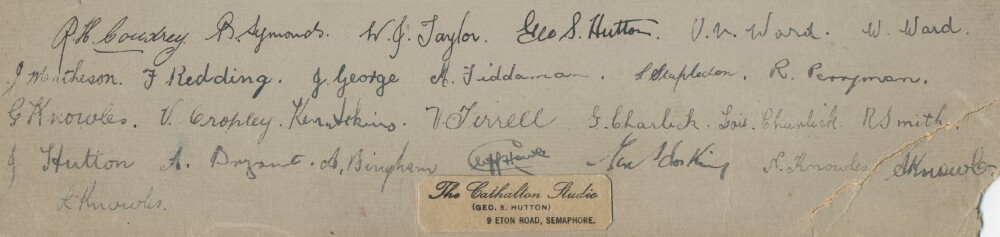 R. H. Cowdrey. B. Symonds. W. J. Taylor. Geo S. Hutton. V. N. Ward. W. Ward.
J Matheson. F Redding. J. George A. Tiddaman. S Stapledon. R. Perryman.
G Knowles. V. Cropley. Ken Atkins. V. Tirrell G. Charlick. Lois. Charlick. R Smith.
J Hutton A. Bryant. A. Bingham Hosking N. Knowles
Knowles.
The Cathalton Studio
(GEO. S. HUTTON)
9 ETON ROAD, SEMAPHORE.